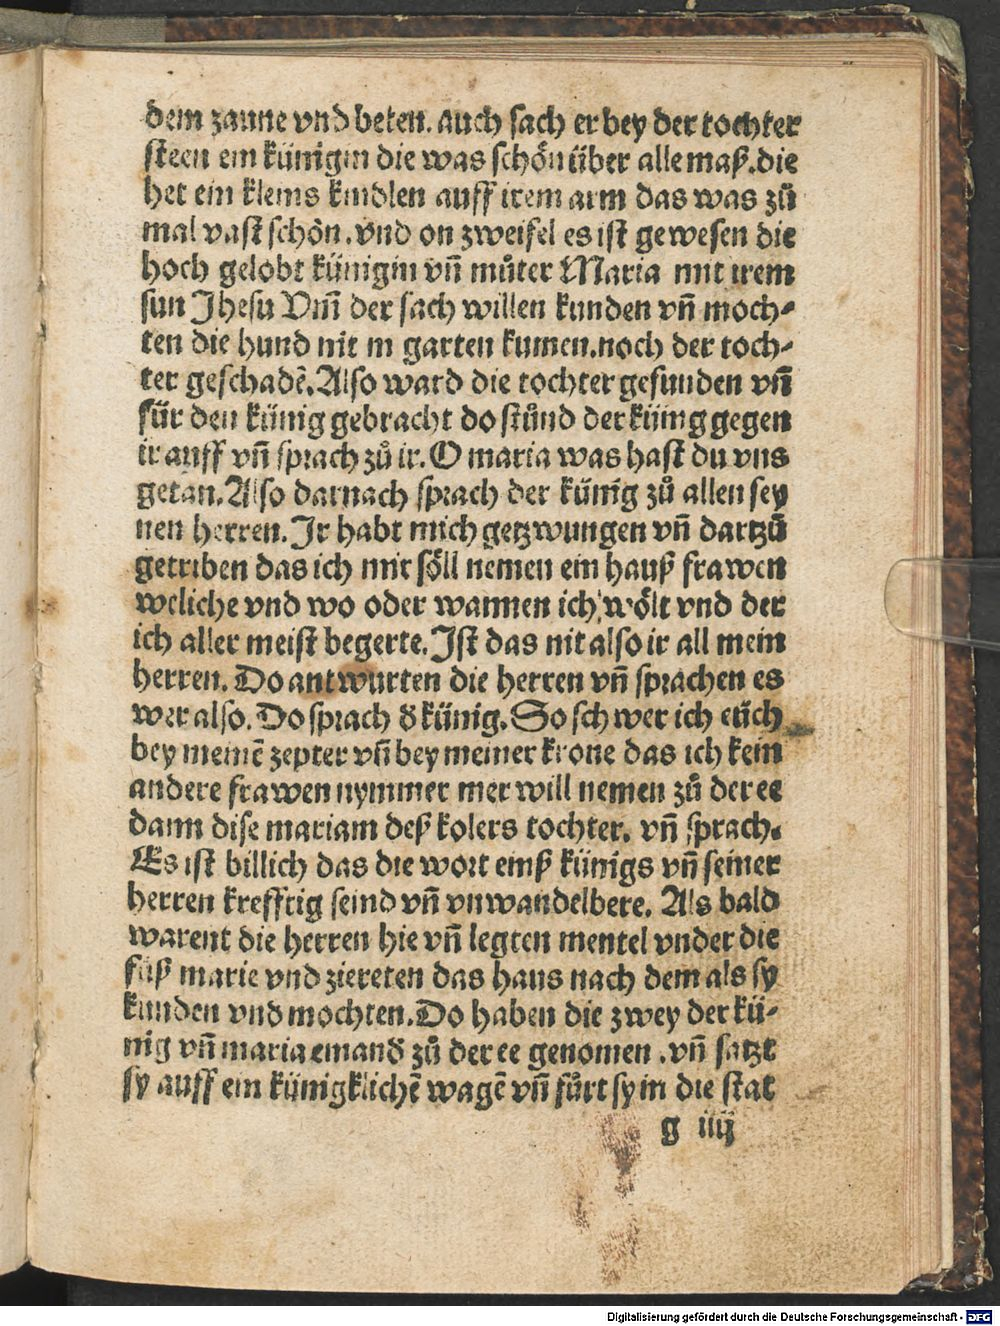 dem zaune vnd beten. auch sach er bey der tochter
steen ein künigin die was schön über alle maß. die
het ein kleins kindlen auff irem arm das was zů
mal vast schön. vnd on zweifel es ist gewesen die
hoch gelobt künigin vn̄ můter Maria mit irem
sun Jhesu Vm̄ der sach willen kunden vn̄ moch-
ten die hund nit in garten kumen. noch der toch-
ter geschadē. Also ward die tochter gefunden vn̄
für den künig gebracht do stůnd der künig gegen
ir auff vn̄ sprach zů ir. O maria was hast du vns
getan. Also darnach sprach der künig zů allen sey
nen herren. Jr habt mich getzwungen vn̄ dartzů
getriben das ich mir söll nemen ein hauß frawen
weliche vnd wo oder wannen ich wölt vnd der
ich aller meist begerte. Jst das nit also ir all mein
herren. Do antwurten die herren vn̄ sprachen es
wer also. Do sprach d̕ künig. So schwer ich eüch
bey meinē zepter vn̄ bey meiner krone das ich kein
andere frawen nymmer mer will nemen zů der ee
dann dise mariam deß kolers tochter. vn̄ sprach.
Es ist billich das die wort einß künigs vn̄ seiner
herren krefftig seind vn̄ vnwandelbere. Als bald
warent die herren hie vn̄ legten mentel vnder die
füß marie vnd ziereten das haus nach dem als sy
kunden vnd mochten. Do haben die zwey der kü-
nig vn̄ maria einand̕ zů der ee genomen. vn̄ satzt
sy auff ein künigklichē wagē vn̄ fůrt sy in die stat
g iiij
Digitalisierung gefördert durch die Deutsche Forschungsgemeinschaft - DFG